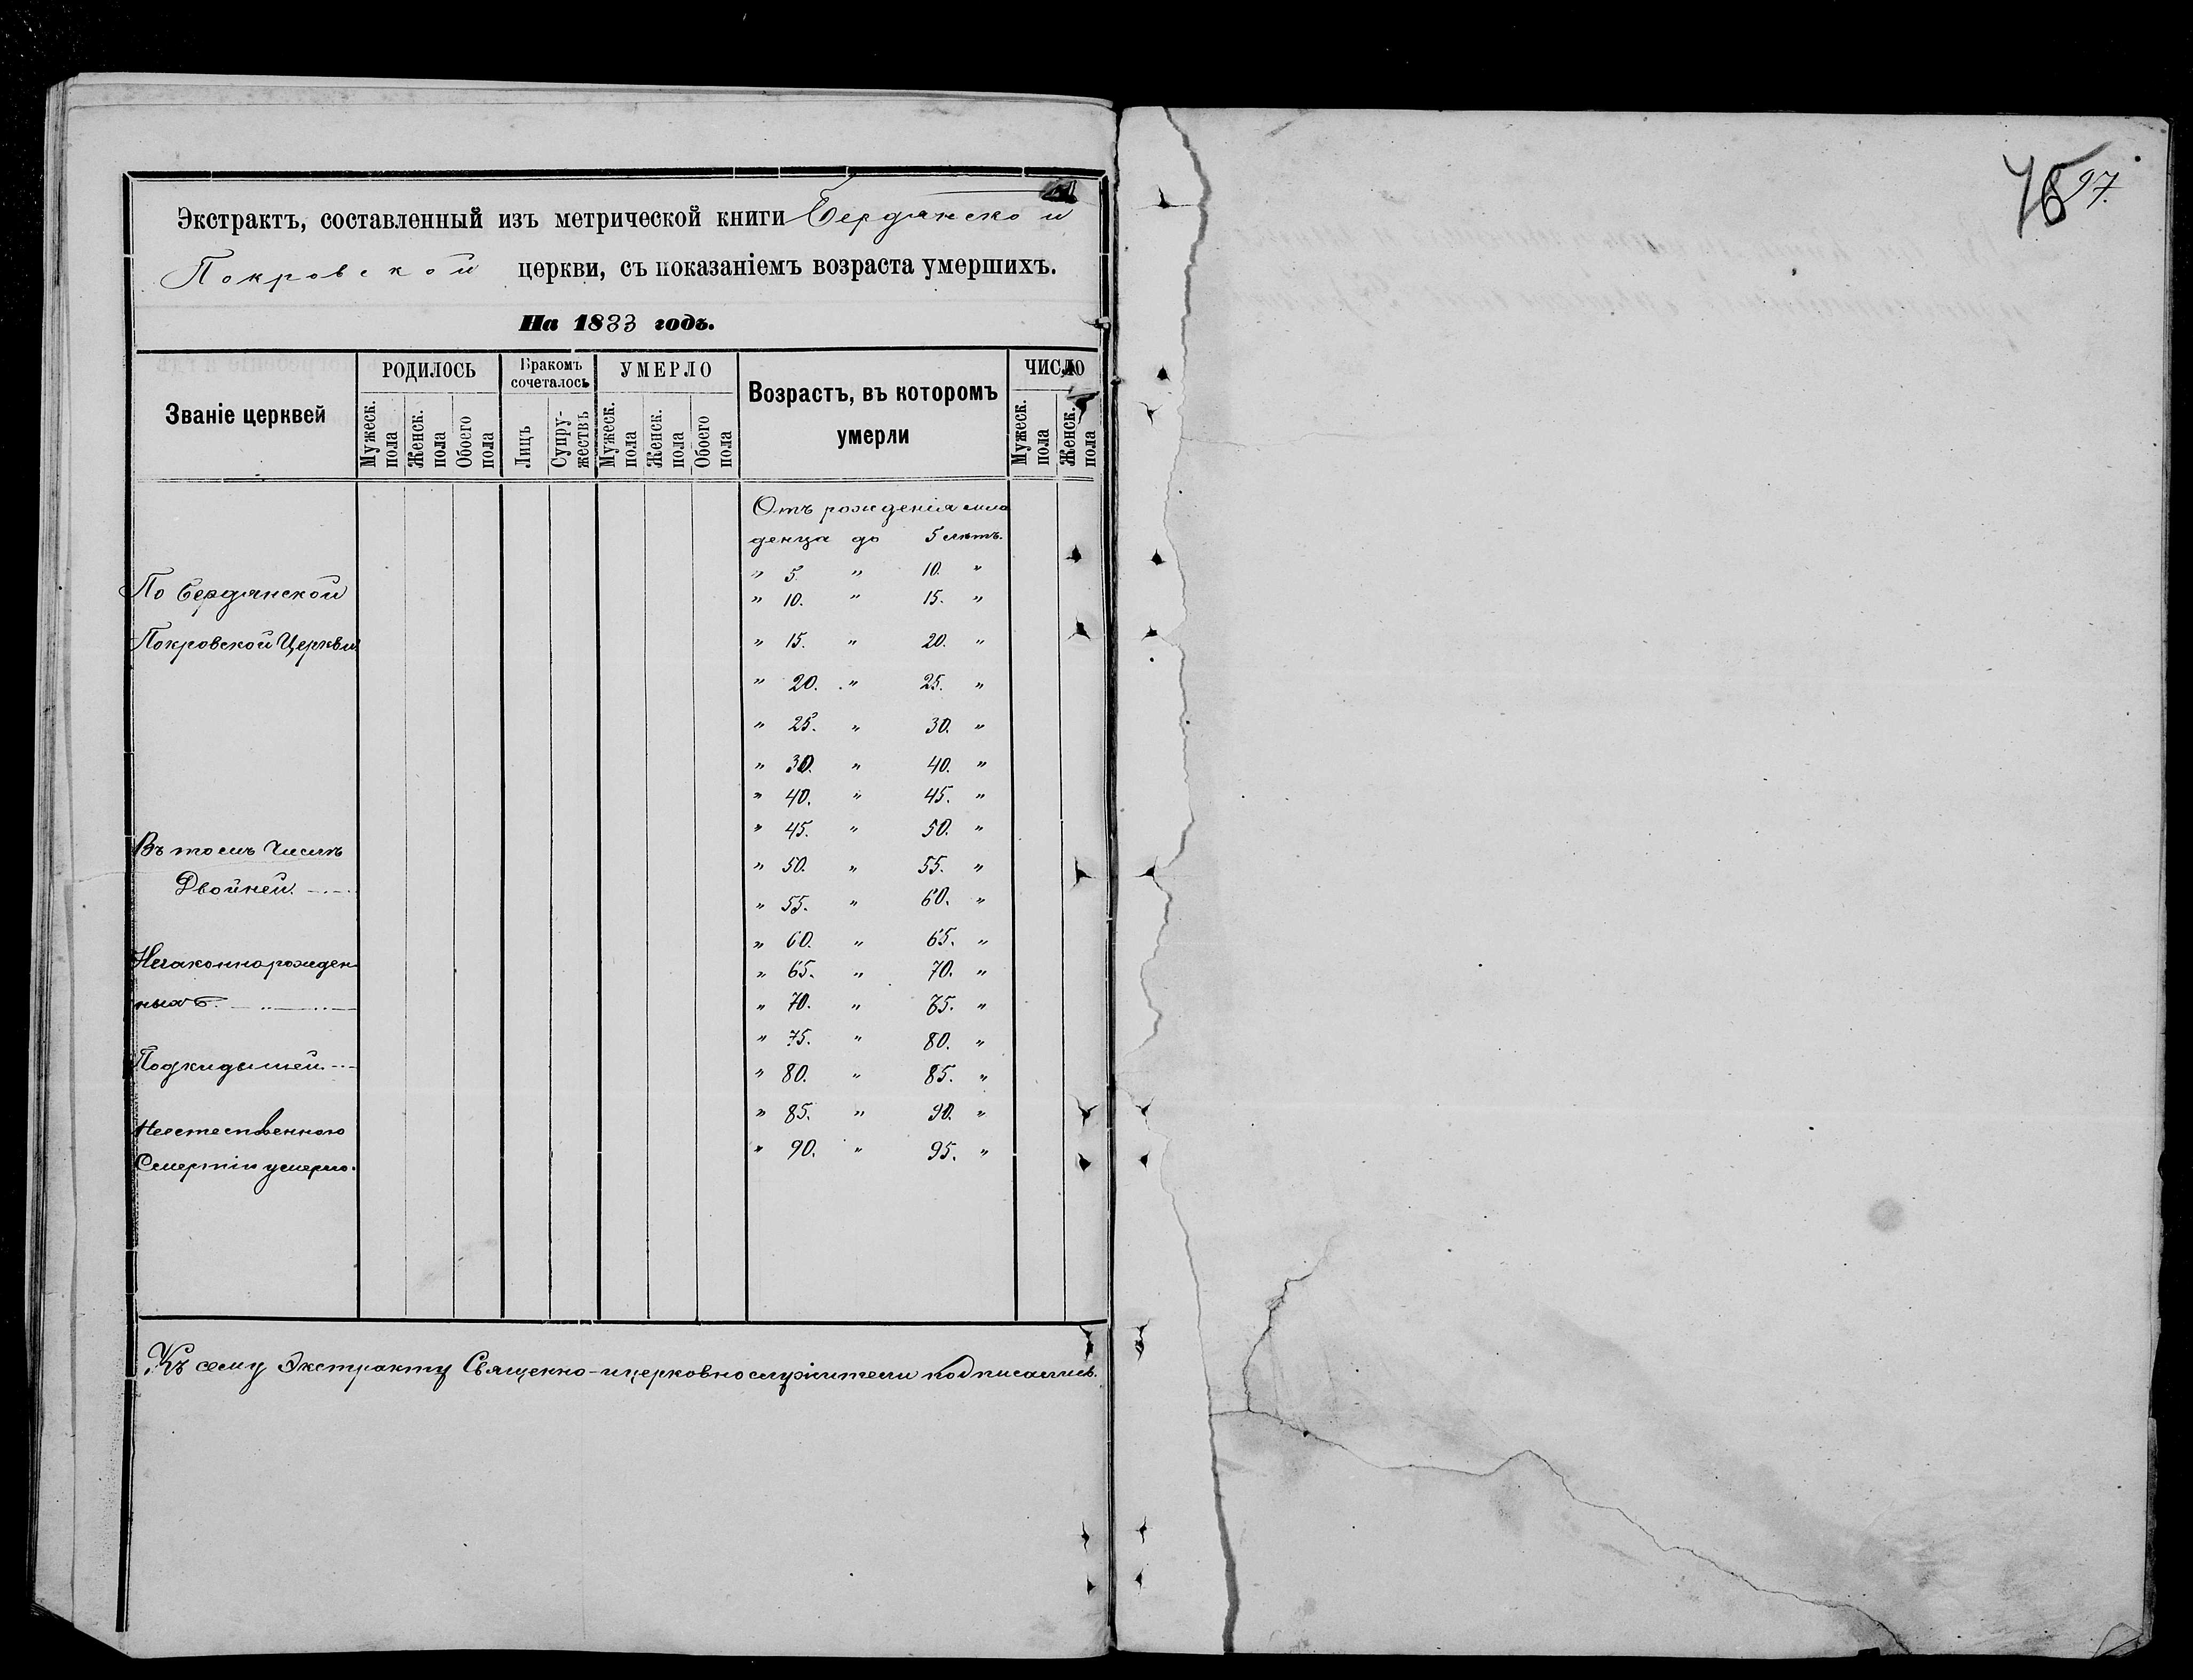 Экстрактъ, составленный изъ метрической книги Бердянской
Покровской церкви, съ показаніемъ возраста умершихъ.
На 1883 годъ.
Званіе церквей
РОДИЛОСЬ
Мужеск. пола
Женск. пола
Обоего пола
Бракомъ сочеталось
Лицъ
Супружествъ
УМЕРЛО
Мужеск. пола
Женск. пола
Обоего пола
Возрастъ, въ которомъ
умерли
ЧИСЛО
Мужеск. пола
Женск. пола
По Бердянской
Покровской Церкви
Въ томъ числѣ
Двойней.
Незаконнорожден-
ныхъ.
Подкидышей.
Неестественною
Смертію умерло.
Отъ рожденія мла
денца до 5 лѣтъ.
" 5. " 10. "
" 10. " 15. "
" 15. " 20. "
" 20. " 25. "
" 25. " 30. "
" 30. " 40. "
" 40. " 45. "
" 45. " 50. "
" 50. " 55. "
" 55. " 60. "
" 60. " 65. "
" 65. " 70. "
" 70. " 75. "
" 75. " 80. "
" 80. " 85. "
" 85. " 90. "
" 90. " 95. "
Къ сему Экстракту Священно-ицерковнослужители подписались.
97.